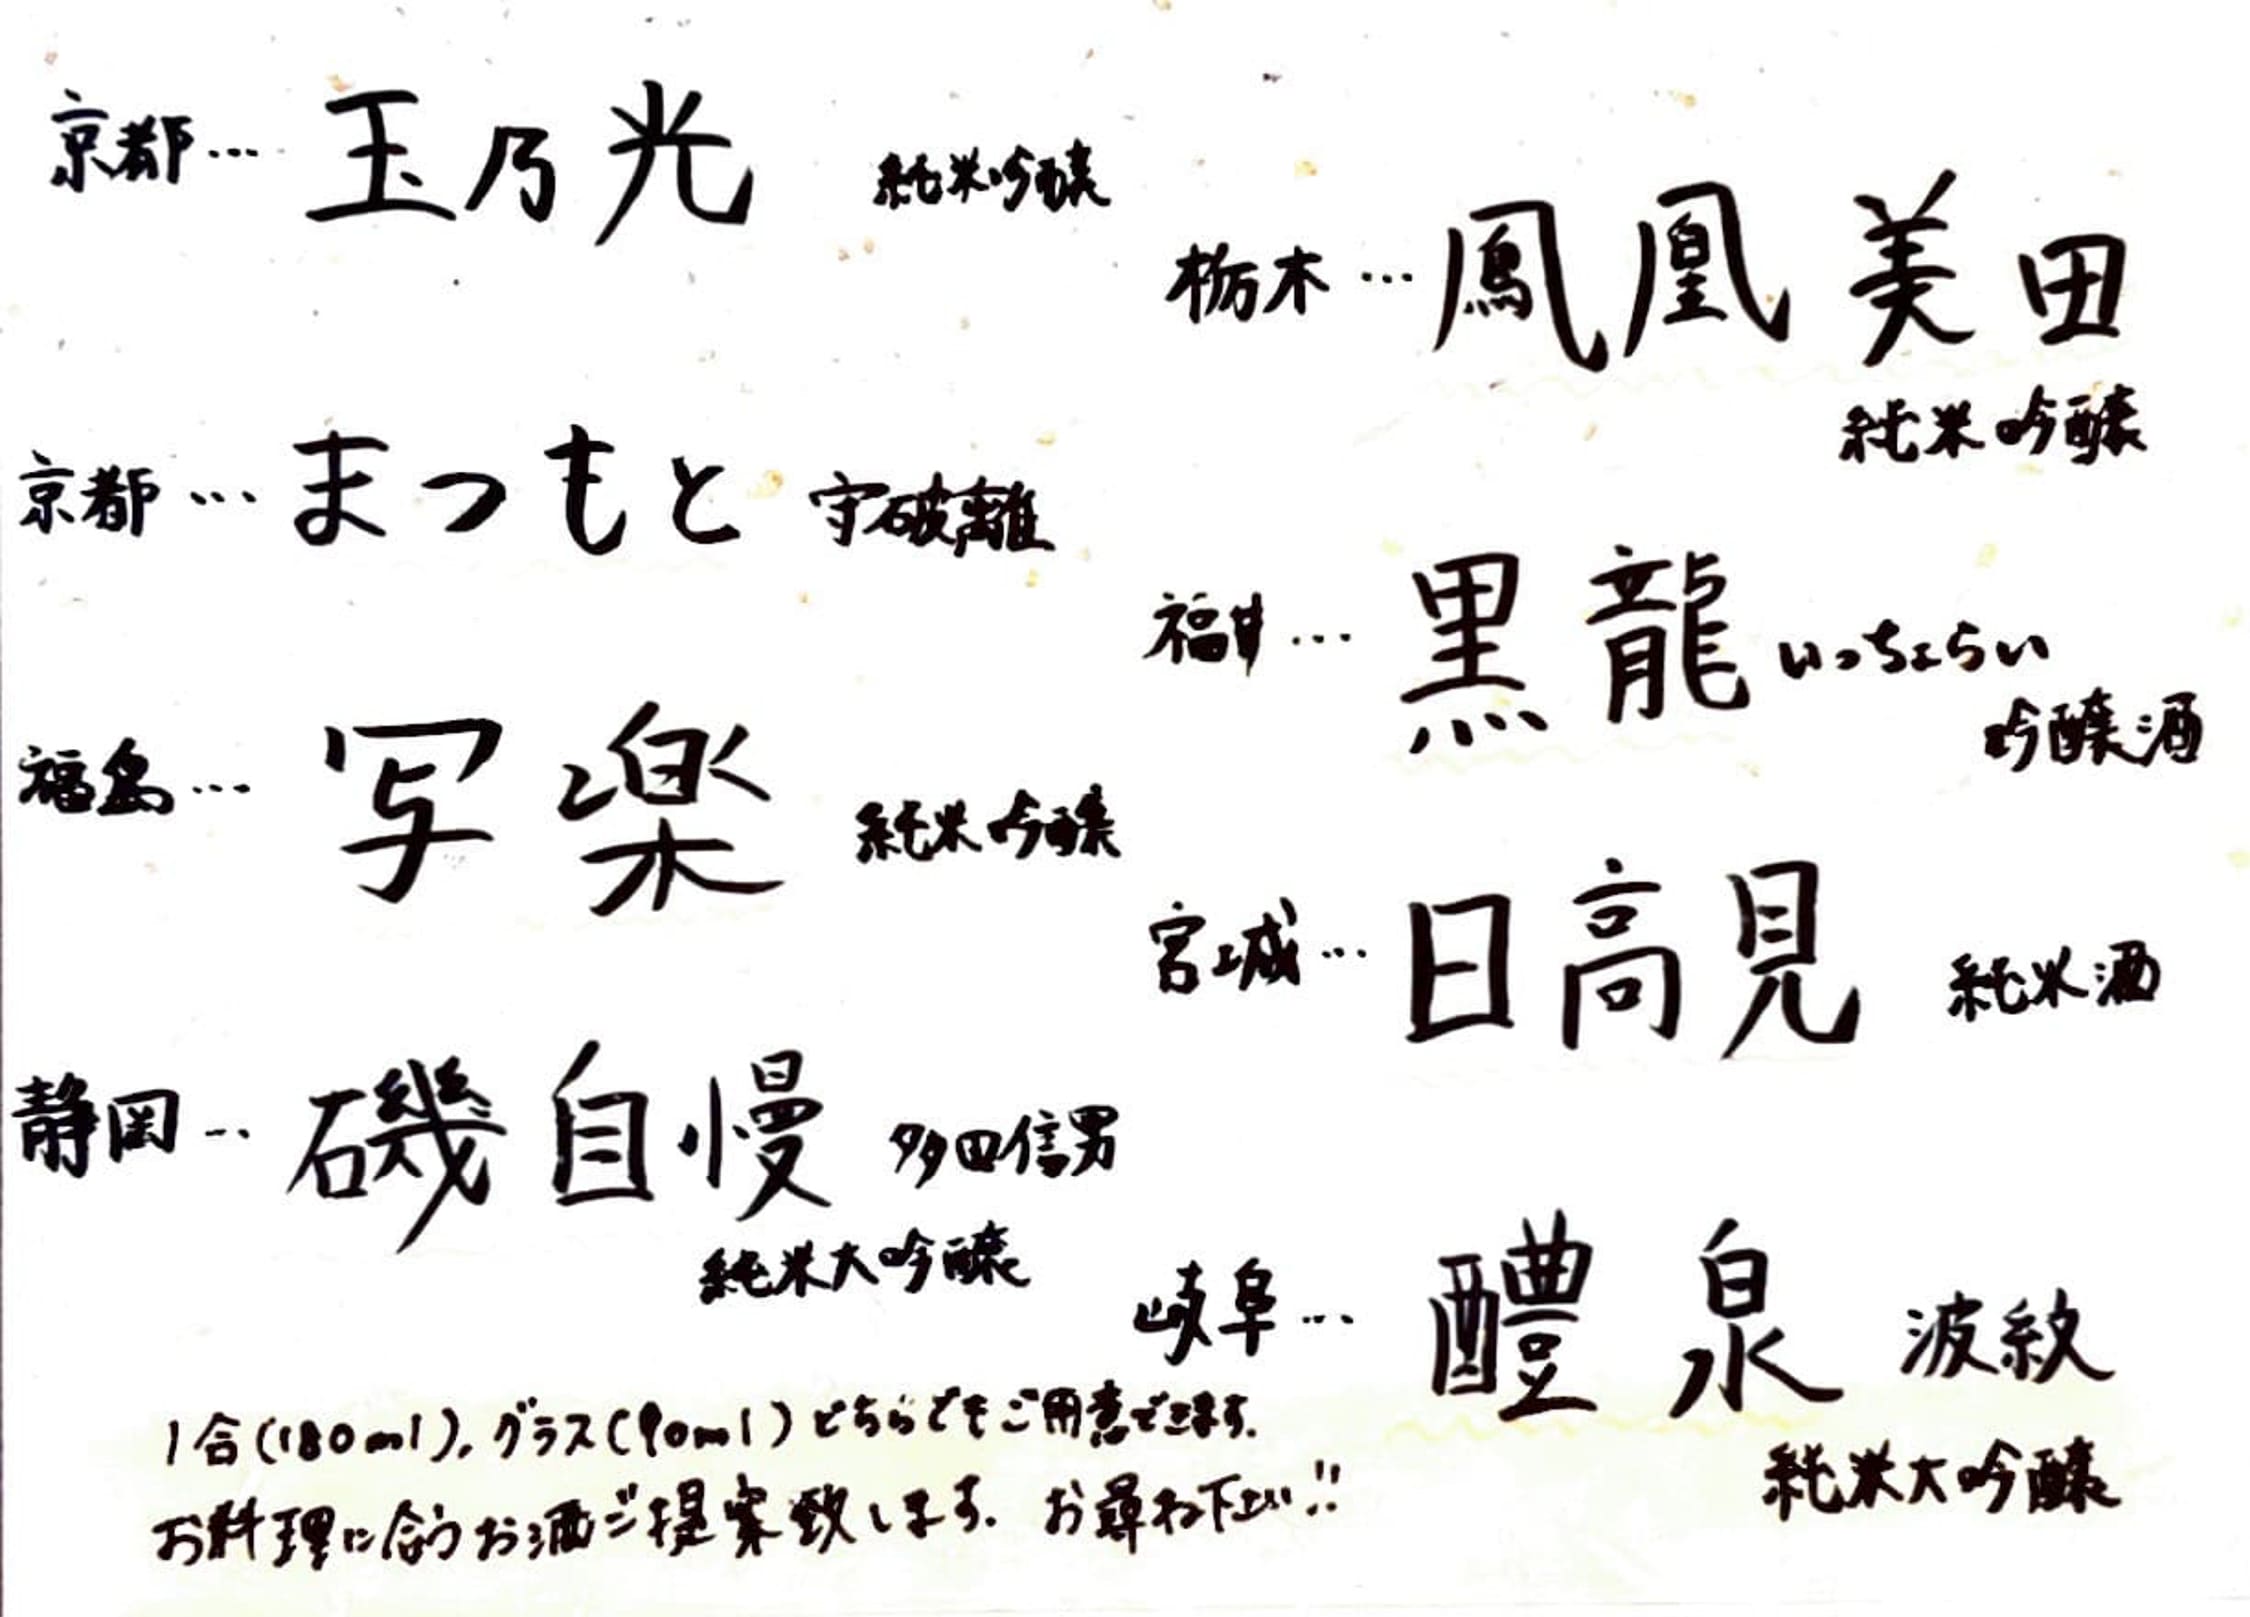 京都… 玉乃光 純米吟醸
京都… まつもと 守破離
福島… 写楽 純米吟醸
静岡… 磯自慢 多田信男
純米大吟醸
栃木… 鳳凰美田
純米吟醸
福井… 黒龍 いっちょらい
吟醸酒
宮城… 日高見 純米酒
岐阜… 醴泉 波紋
純米大吟醸
1合(180ml)、グラス(90ml)どちらでもご用意できます。
お料理に合うお酒ご提案致します。お尋ね下さい!!